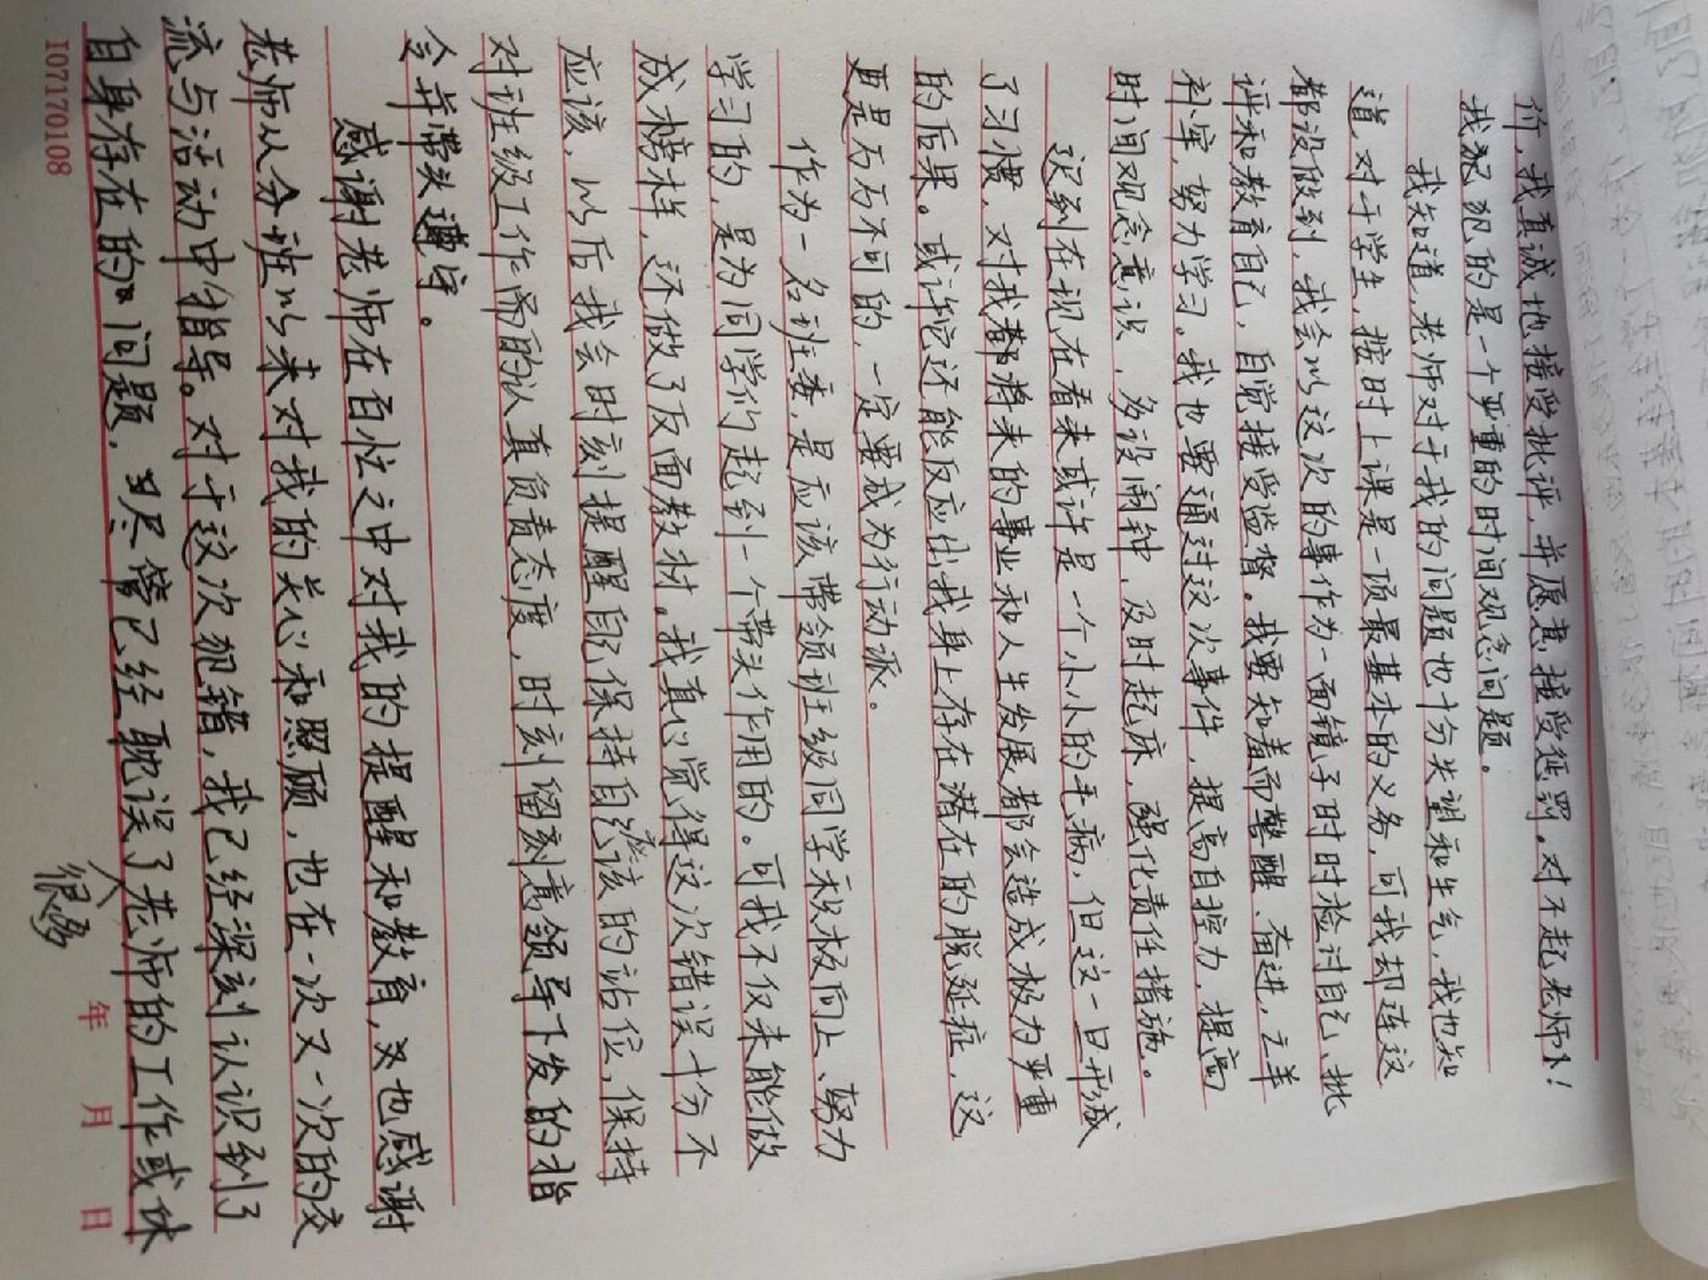 价，我真诚地接受批评，并愿意接受惩罚。对不起老师！
我犯犯的是一个严重的时间观念问题。
我知道，老师对于我的问题也十分失望和生气，我也知
道，对于学生，按时上课是一项最基本的义务，可我却连这
都没做到，我会以这次的事作为一面镜子时时检讨自己，批
评和教育自己，自觉接受监督。我要知羞而警醒、奋进，亡羊
补牢，努力学习。我也要通过这次事件，提高自控力，提高
时间观念意识，多设闹钟，及时起床，强化责任措施。
这到在现在看来或许是一个小小的毛病，但这一旦形成
了习惯，对我都将来的事业和人生发展都会造成极为严重
的后果。或许它还能反应出我身上存在潜在的脱延症，这
更是万万不可的，一定要成为行动派。
作为一名班委，是应该带领班王级同学积极向上、努力
学习的，是为同学们起到一个带头作用的。可我不仅未能做
成木榜样，还做了反面教材。我真心觉得这次错误十分不
应该，以后我会时刻提醒自己保持自己应该的站位，保持
对班级工作需的认真负责态度，时刻留刻意领导下发的指
令并带头遵守。
感谢老师在百忙之中对我的提醒和教育，又也感谢
老师从分班以来对我的关心和照顾，也在一次又一次的交
流与活动中指导。对于这次犯错，我已经深刻认识到了
自身存在的问题，尽管已经耽误了老师很多的工作或休
年 月 日
I07170108